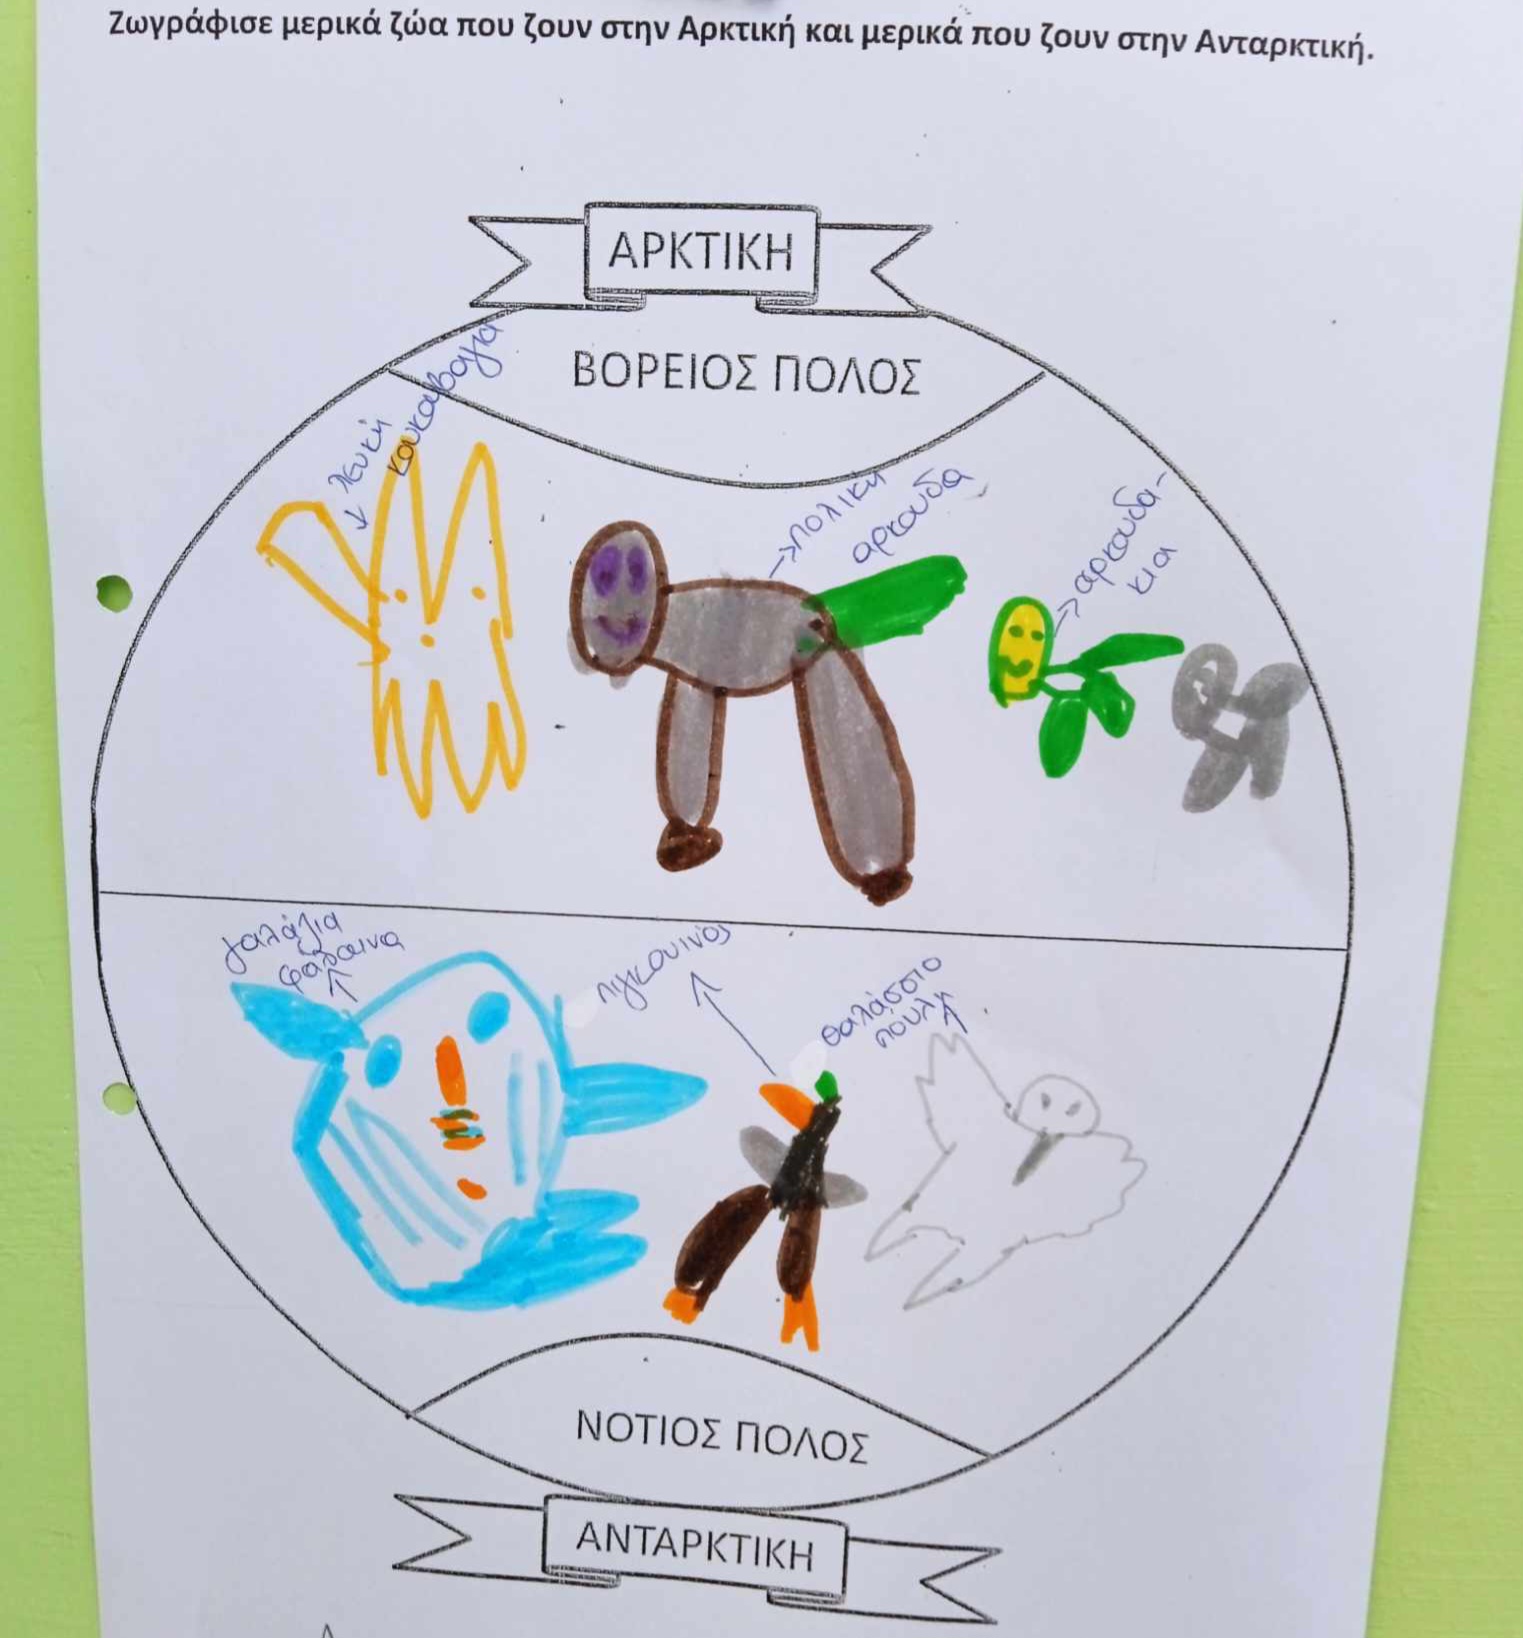 Ζωγράφισε μερικά ζώα που ζουν στην Αρκτική και μερικά που ζουν στην Ανταρκτική.
ΑΡΚΤΙΚΗ
ΒΟΡΕΙΟΣ ΠΟΛΟΣ
λευκή
κουκουβαγια
πολικη
αρκουδα
αρκουδα-
κια
γαλάζια
φάλαινα
πιγκουινος
θαλάσσιο
πουλι
ΝΟΤΙΟΣ ΠΟΛΟΣ
ΑΝΤΑΡΚΤΙΚΗ